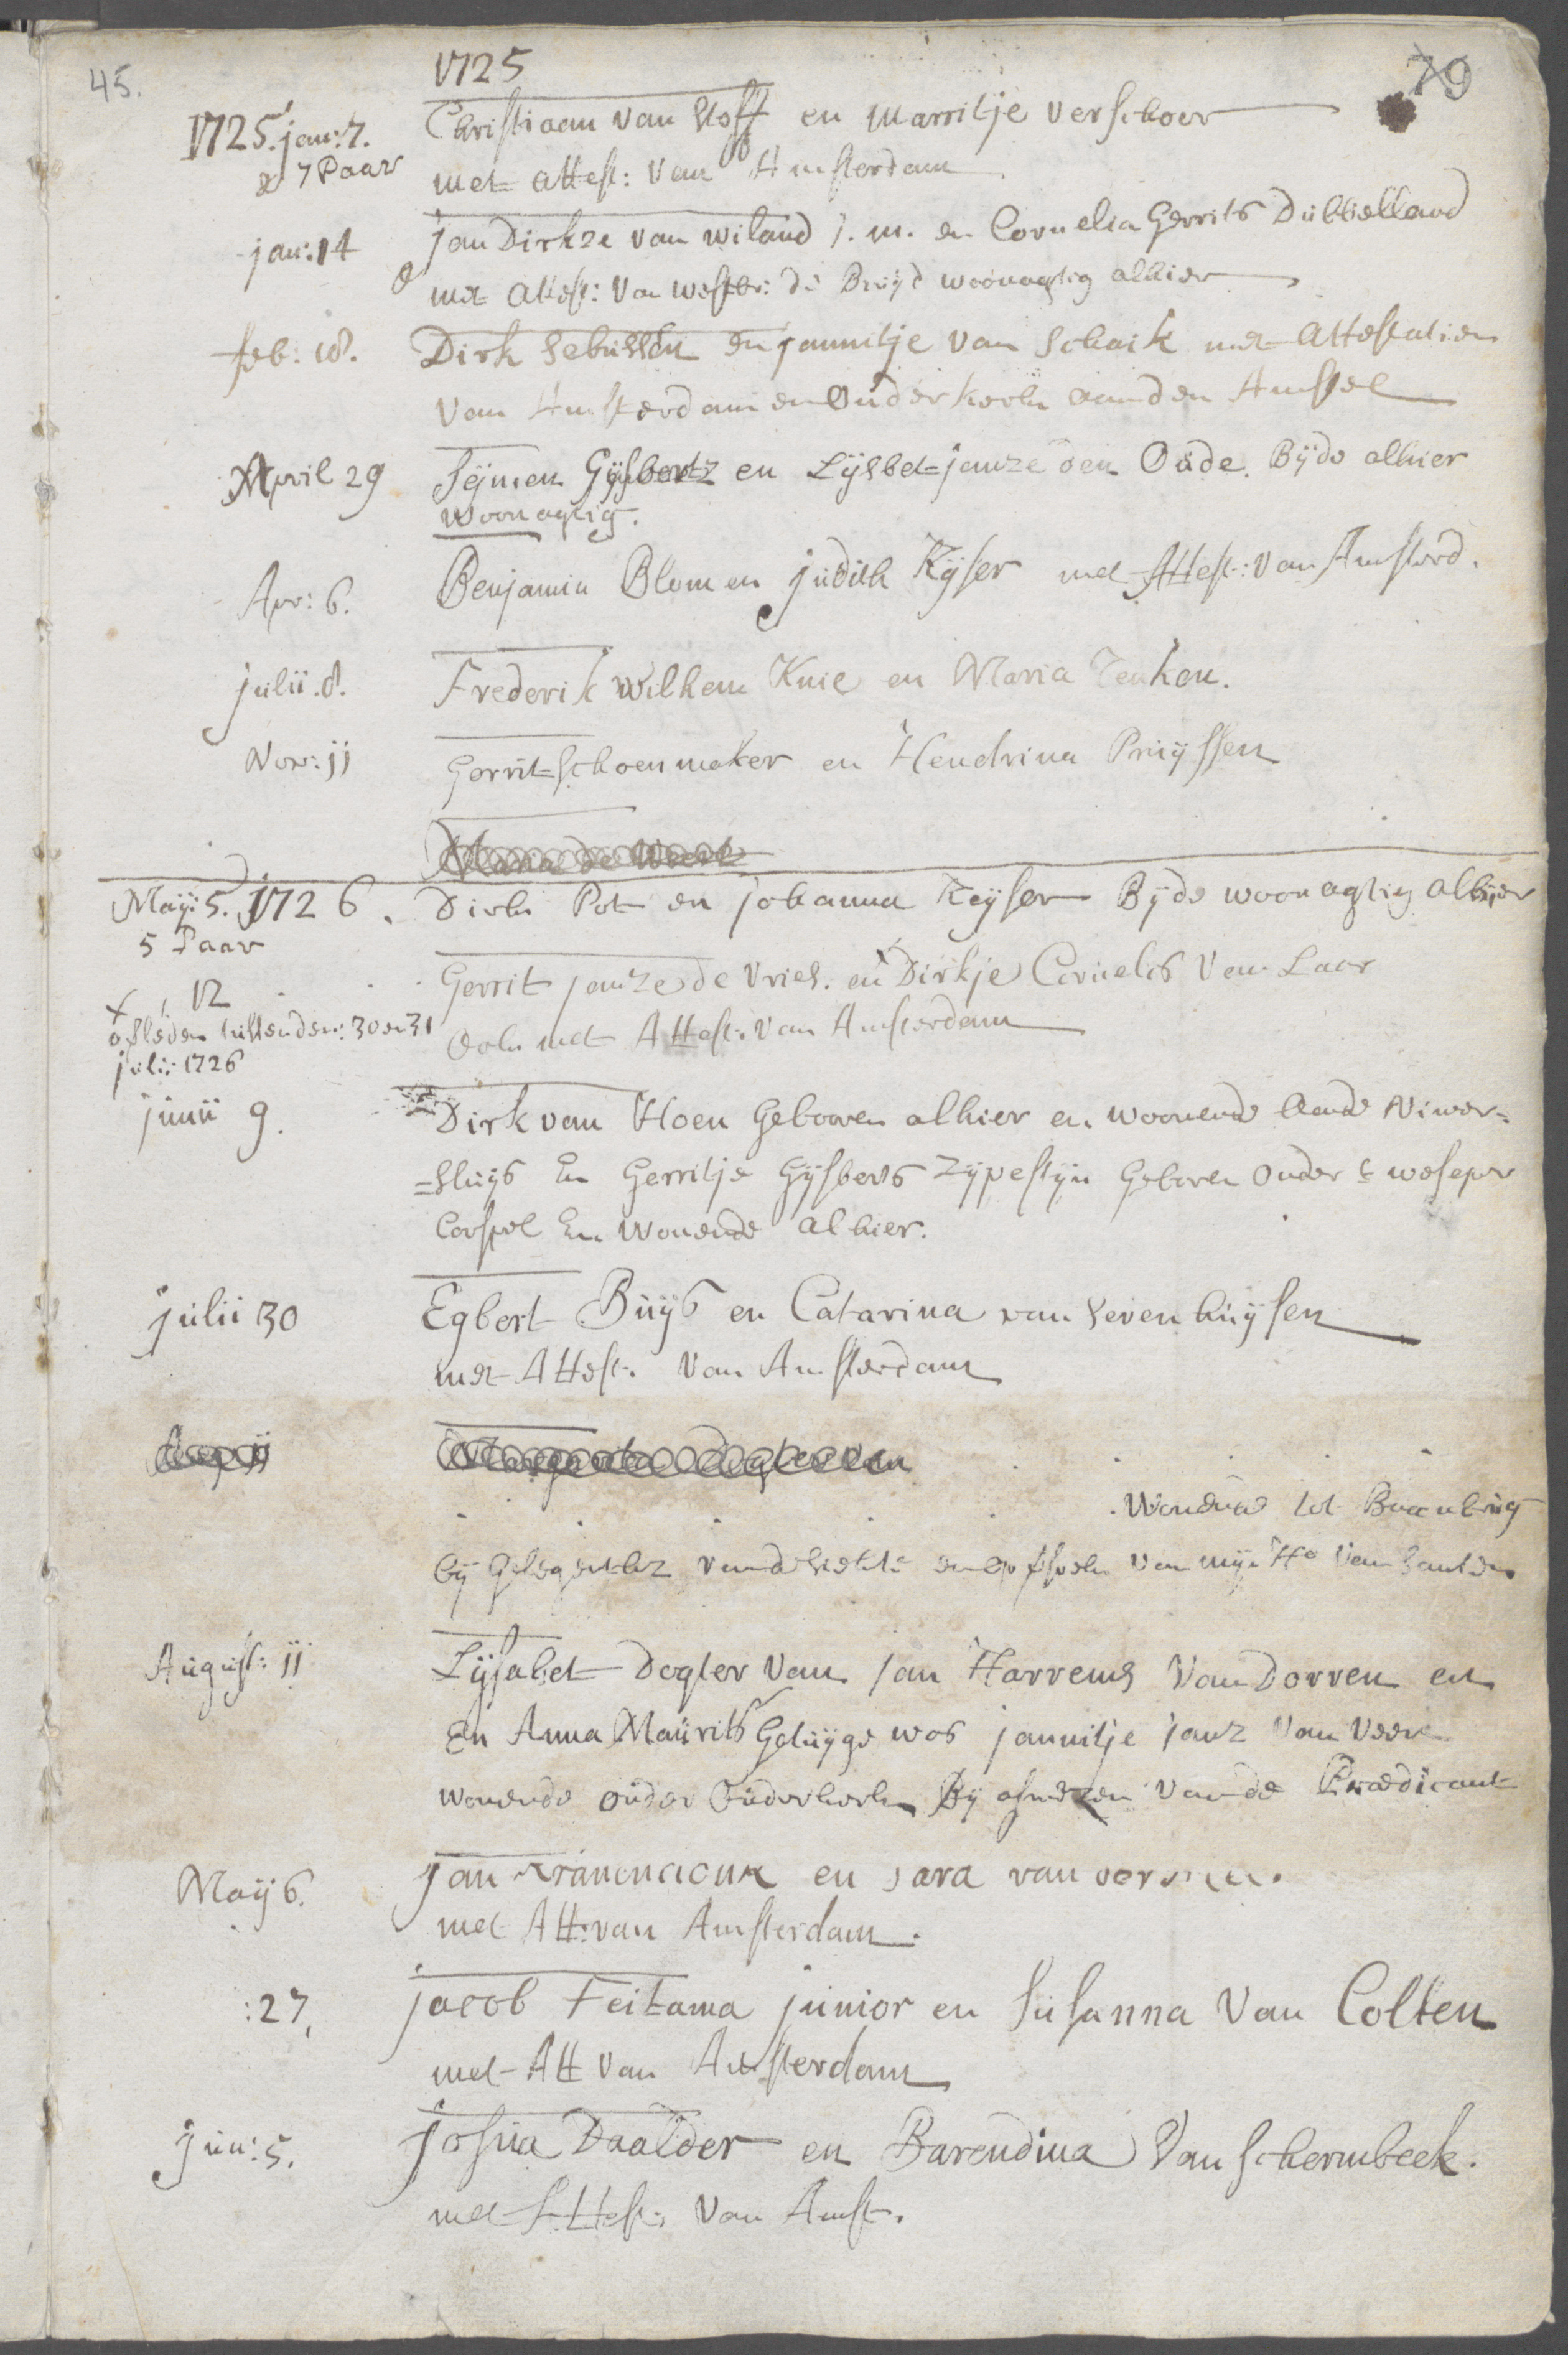 45.
1725
79
1725. jan: 7. Christiaan van Hoff en Marritje Verschoer
7 Paar met attest: van Amsterdam
jan: 14 jan Dirkze van wiland j. m. en Cornelia Gerrits Dubbielland
met Attest: van westbr: de Bruÿd woonagtig alhier
feb: 18. Dirk en jannitje van Schaik met Attestatien
van Amsterdam en Ouderkerk aanden Amstel
April 29 Seÿmen Gÿsbertz en Lÿsbet janze den Oude. Bÿde alhier
woonagtig.
Apr: 6. Benjamin Blom en judith Kÿser met Attest: van Amsterd.
julii. 8. Frederik Wilhem Knie en Maria
Nov: 11 Gerrit Schoenmaker en Hendrina Pruÿssen
Maria de
Maÿ: 5. 1726. Dirk Pot en johanna Keÿser Bÿde woonagtig alhier
5 Paar
12 Gerrit janze de Vries. en Dirkje Cornelis van Laar
ofleden tusschen den: 30 en 31 Ook met Attest: van Amsterdam
julii 1726
junii 9. Dirk van Hoen Geboren alhier en woonende aande Niwer=
=sluÿs En Gerritje Gÿsberts Zÿpestÿn Geboren onder weseper
Carspel En wonende alhier.
julii 30 Egbert Buÿs en Catarina van Sevenhuÿsen
met Attest. van Amsterdam
Aug 11 Margareta Dogter van
Wonende tot Baanbrug
bÿ gelegenthz vande siekte van mÿn Hr van Santen
August: 11 Lÿsabet Dogter van jan Harrems van Dorren en
En Anna Maurits Getuÿge was jannitje janz van Veen
wonende onder Ouderkerk Bÿ afwezen van de Praedicant
Maÿ 6. jan en Sara van
met Att: van Amsterdam.
:27, jacob Feitama junior en Susanna van Colten
met Att van Amsterdam
jun: 5. josua Daalder en Barendina van Schermbeek.
met Attest: van Amst.